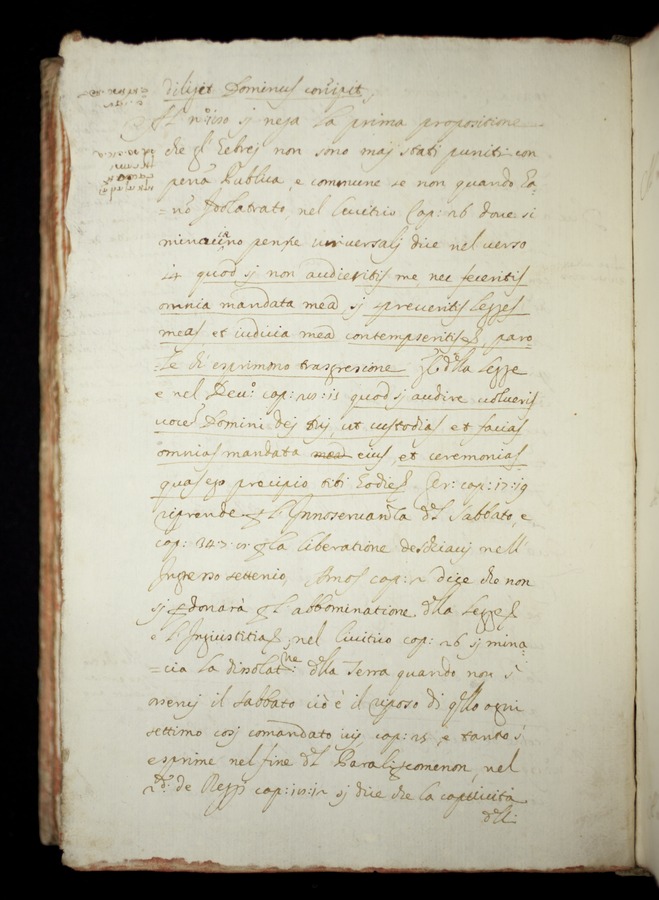 diligit Dominus corripit,
si nega la prima propositione
che gl' Hebrej non sono maj stati puniti con
pena Publica, e commune se non quando ha:
=no Idolatrato, nel Levitico Cap: 26 dove si
penne universalj dice nel verso
14 quod sj non audieritis me, nec feceritis
omnia mandata mea, sj spreveritis legges
meas et iudicia mea contempseritis, paro
=le ch' esprimono trasgresione della Legge
e nel Deuº. cap: quod sj audire volueris
voce Domini dej tuj, ut custodias et facias
omnias mandata mea eius, et ceremonias
quas ego precipio tibi hodie Ger: cap: 17: 19
riprende l'Innoservanza del Sabbato, e
cap: 34 la liberatione de schiavj nell'
Ingresso settenio, Amos cap: 2 dice che non
sj donarà l'abbominatione della Legge
e l'Ingiustitia, nel Livitico cap: 26 sj mina
=cia la disolatne: della Terra quando non s'
osservj il sabbato ciò è il riposo di quello ogni
settimo cosj comandato ivj cap: 25, e tanto s'
esprime nel fine del Paralipomenon, nel
2do: de Regj cap: sj dice che la captività
dell: